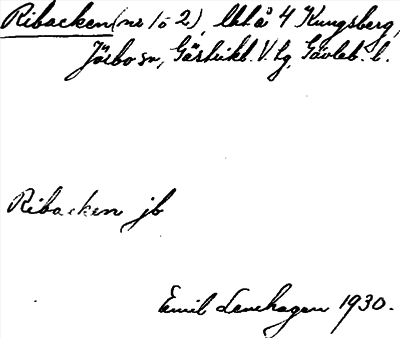 Ribacken (nr 1 o 2), lht å 4 Kungsberg,
Järbo sn, Gästrikl. V. tg, Gävleb. l.
Ribacken jb
Emil Lenehagen 1930.